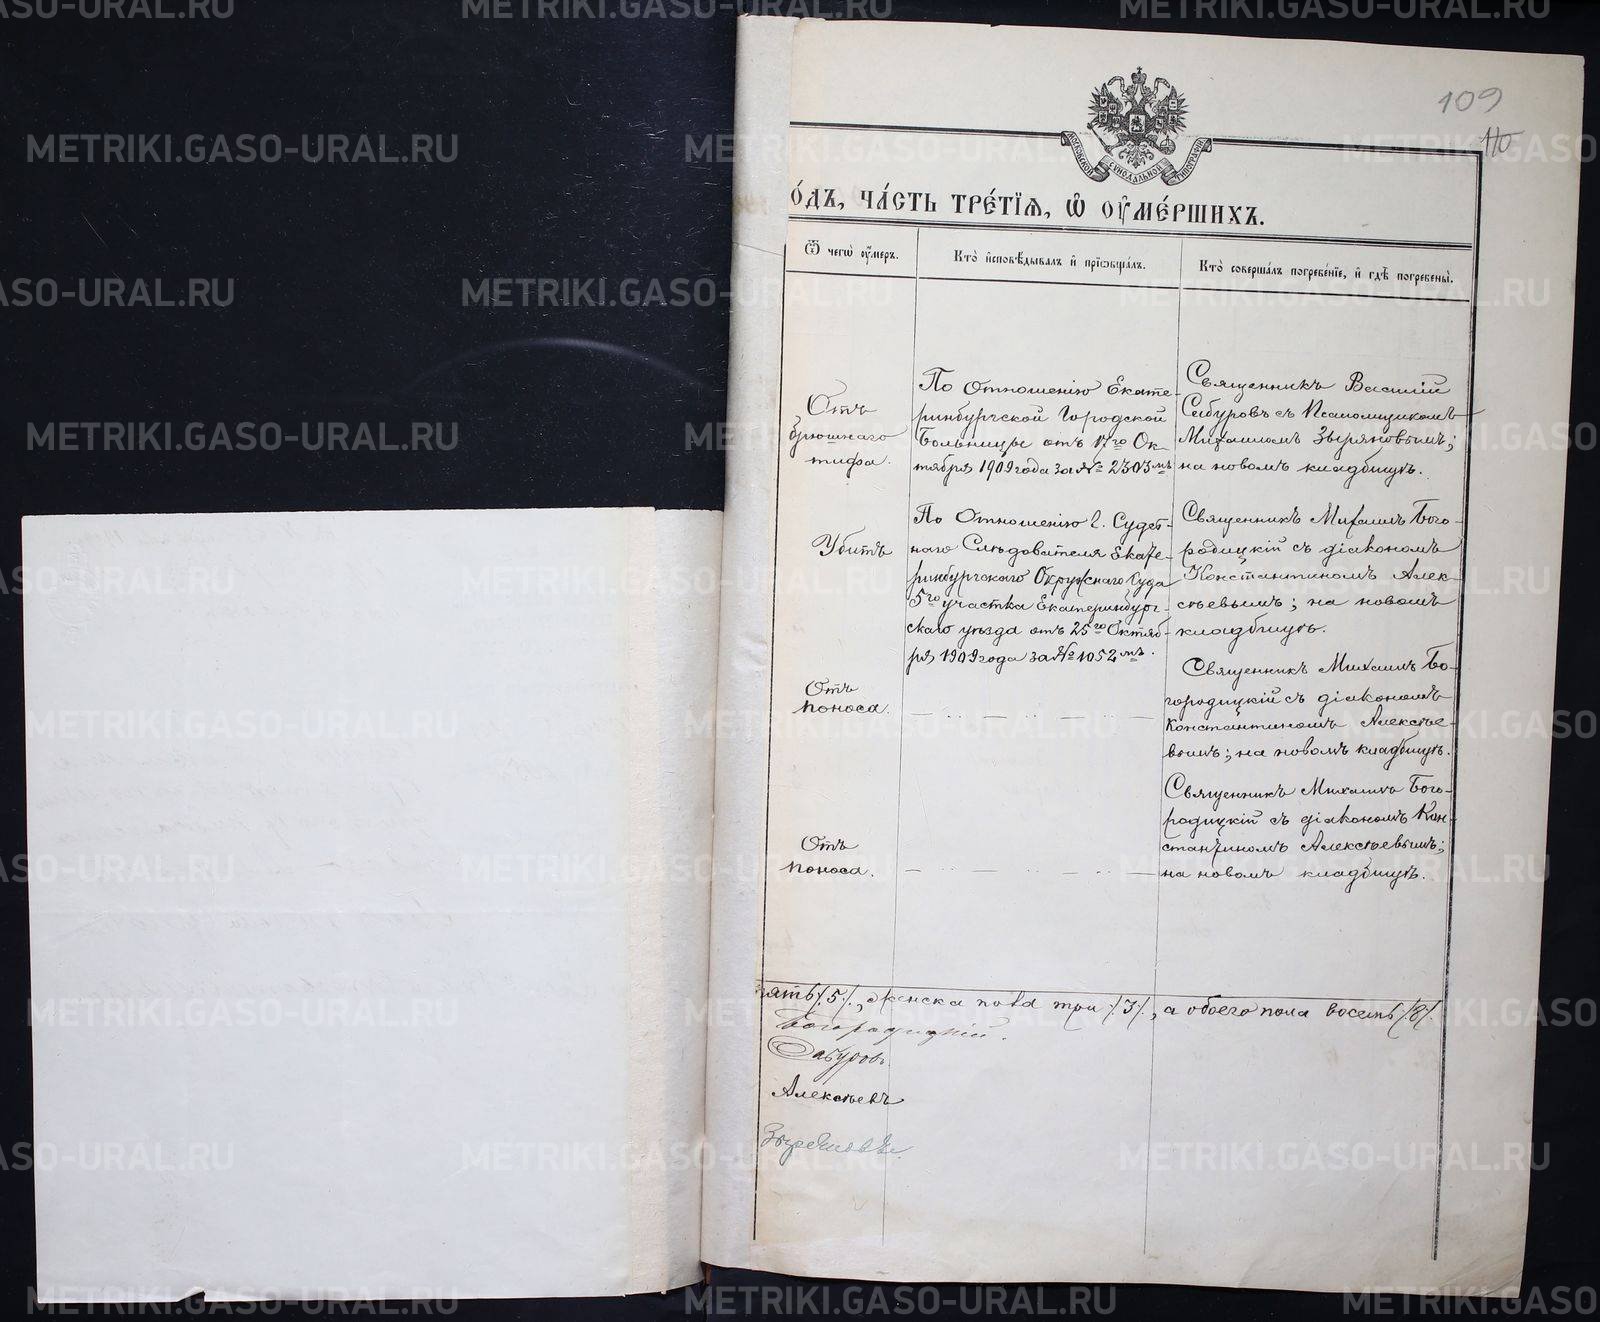 109
110
МОСКОВСКОЙ СѴНОДАЛЬНОЙ ТИПОГРАФІИ
ОДЪ, ЧАСТЬ ТРЕТІЯ, Ѡ ОУМЕРШИХЪ.
Ѿ чегѡ оумеръ.
Кто исповѣдывалъ и пріѡбщалъ.
Кто совершалъ погребеніе, и гдѣ погребены.
Отъ
брюшнаго
тифа.
По Отношенію Екате-
ринбургской Городской
Больницы отъ 17го Ок-
тября 1909 года за № 2303мъ
Священникъ Василій
Сабуровъ съ Псаломщикомъ
Михаиломъ Звѣряковымъ;
на новомъ кладбищѣ.
Убитъ
По Отношенію Г. Судеб-
наго Слѣдователя Екате-
ринбургскаго Окружнаго Суда
5го участка Екатеринбург-
скаго уѣзда отъ 25го Октяб-
ря 1909 года за № 1052мъ.
Священникъ Михаилъ Бого-
родицкій съ діакономъ
Константиномъ Алек-
сѣевымъ; на новомъ
кладбищѣ.
Отъ
поноса.
Священникъ Михаилъ Бо-
городицкій съ діакономъ
Константиномъ Алексѣе-
вымъ; на новомъ кладбищѣ.
Отъ
поноса.
Священникъ Михаилъ Бого-
родицкій съ діакономъ Кон-
стантиномъ Алексѣевымъ;
на новомъ кладбищѣ.
пять /.5/., женска пола три /.3/., а обоего пола восемь /.8/.
Богородицкій.
Сабуровъ
Алексѣевъ
METRIKI.GASO-URAL.RU